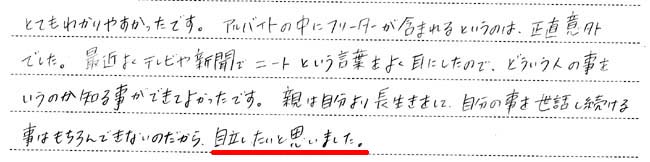 とてもわかりやすかったです。アルバイトの中にフリーターが含まれるというのは、正直意外
でした。最近よくテレビや新聞でニートという言葉をよく耳にしたので、どういう人の事を
いうのか知る事ができてよかったです。親は自分より長生きをして、自分の事を世話し続ける
事はもちろんできないのだから、自立したいと思いました。